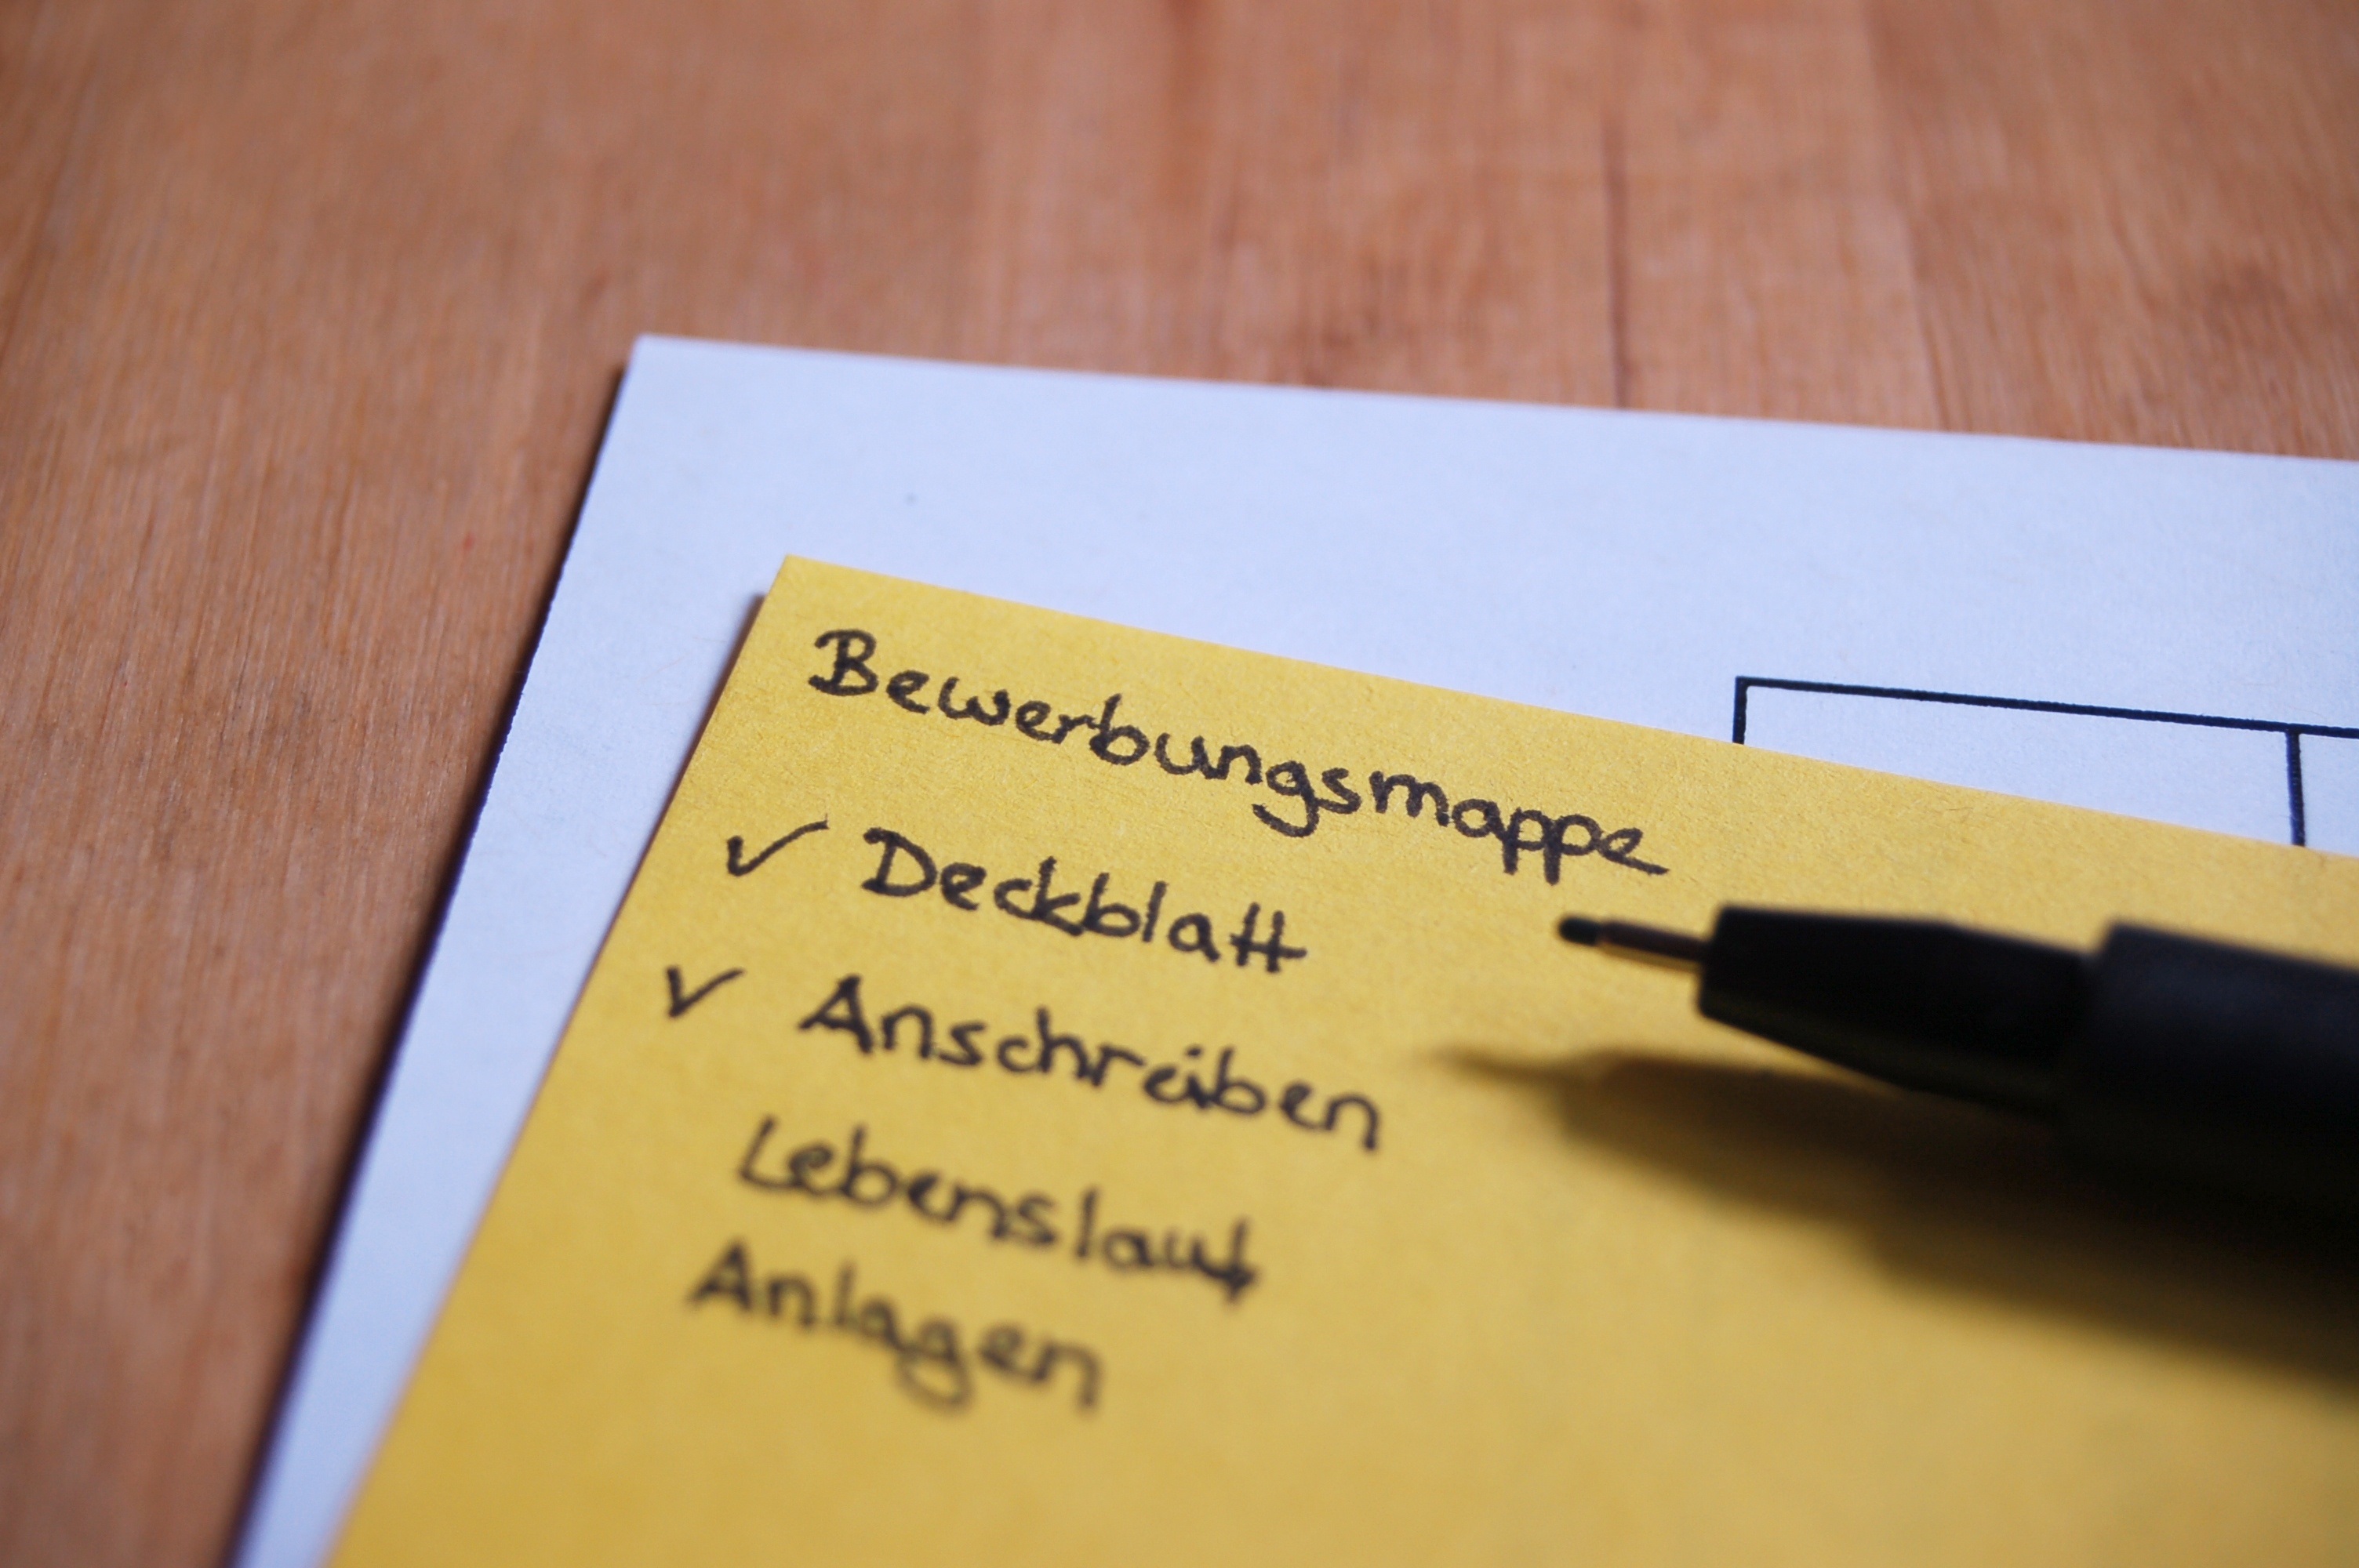 Bewerbungsmappe
✓ Deckblatt
✓ Anschreiben
Lebenslauf
Anlagen